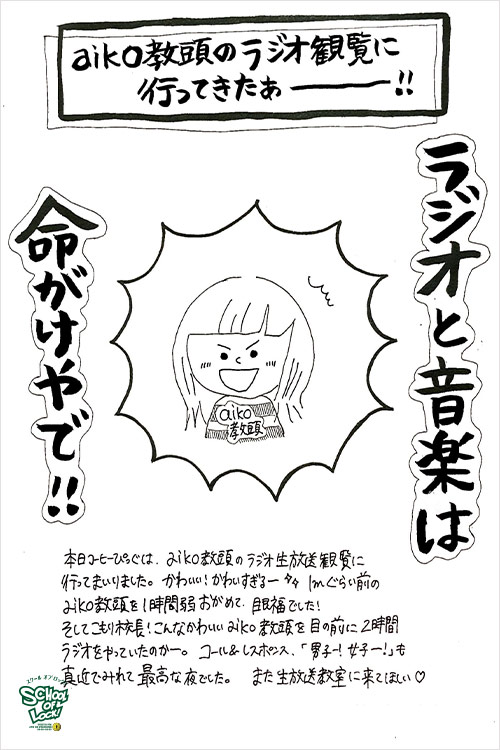 aiko教頭のラジオ観覧に
行ってきたぁ───!!
ラジオと音楽は
命がけやで!!
aiko
教頭
本日コーヒーぴらぐは、aiko教頭のラジオ生放送観覧に
行ってまいりました。かわいい!かわいすぎるー 1mぐらい前の
aiko教頭を1時間弱おがめて、眼福でした!
そしてこもり校長!こんなかわいいaiko教頭を目の前に2時間
ラジオをやっていたのかー。コール&レスポンス、「男子ー!女子ー!」も
真近でみれて最高な夜でした。また生放送教室に来てほしい♡
スクール オブ ロック
SCHOOL
OF
LOCK!